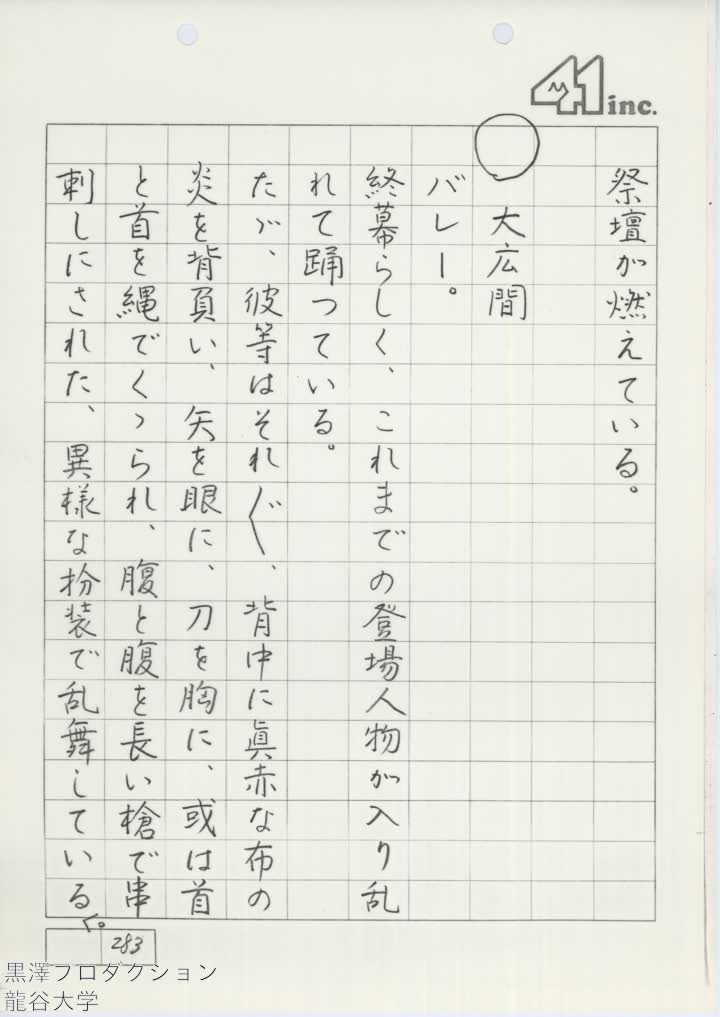 41 inc.
祭壇が燃えている。
○　大広間
バレー。
終幕らしく、これまでの登場人物が入り乱
れて踊つている。
たゞ、彼等はそれ〴〵、背中に眞赤な布の
炎を背負い、矢を眼に、刀を胸に、或は首
と首を縄でくゝられ、腹と腹を長い槍で串
刺しにされた、異様な扮装で乱舞している。
283
黒澤プロダクション
龍谷大学